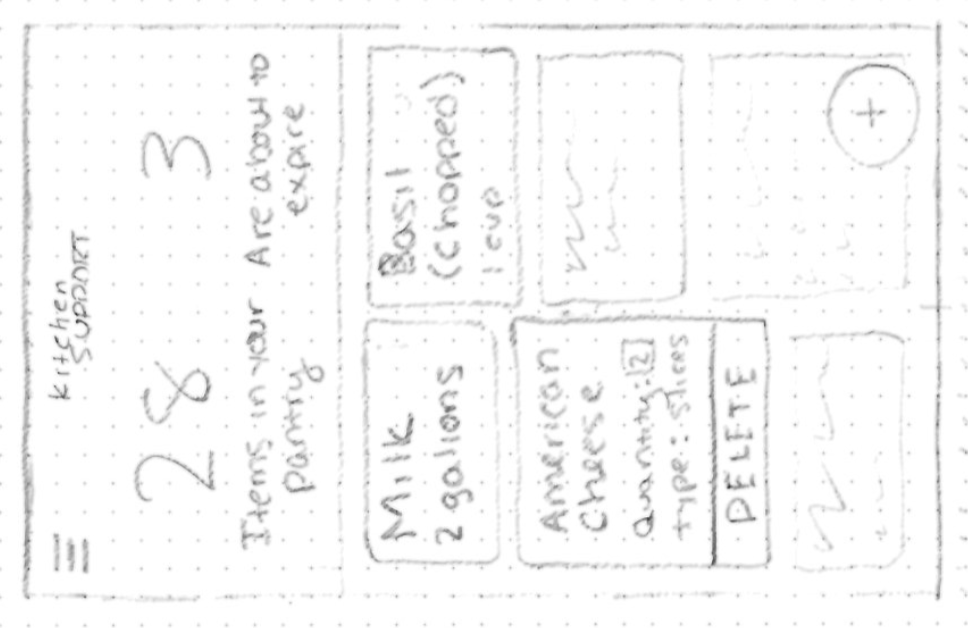 Kitchen
SUPPORT
28
Items in your
pantry
3
Are about to
expire
Milk
2 gallons
Basil
(Chopped)
1 cup
American
Cheese
Quantity: 2
type: slices
DELETE
+